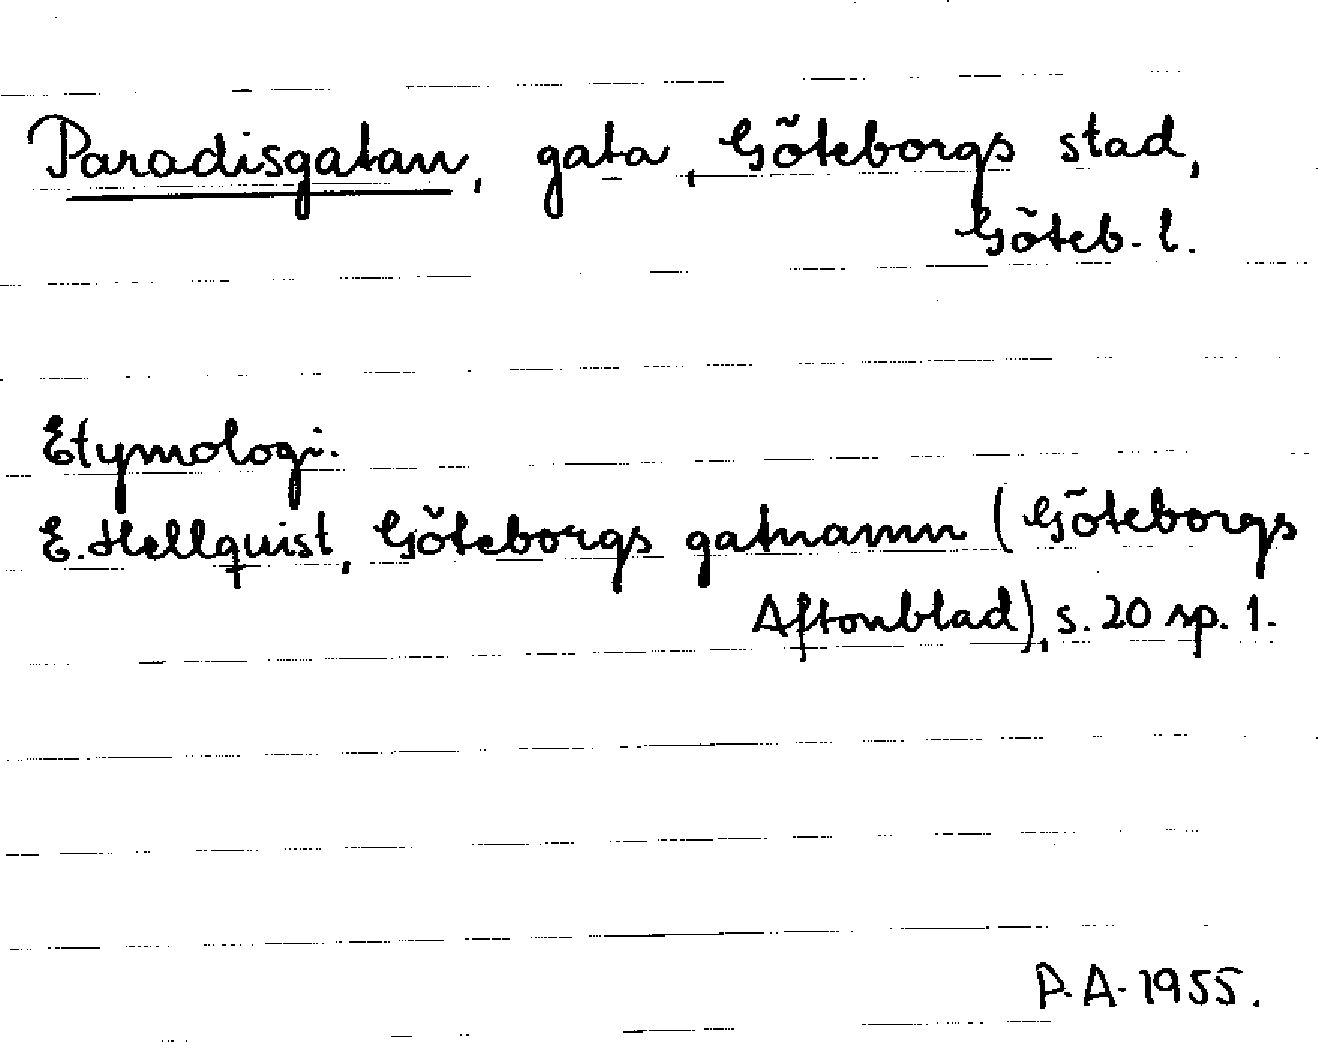 Paradisgatan, gata, Göteborgs stad,
Göteb. l.
Etymologi.
E. Hellquist, Göteborgs gatnamn (Göteborgs
Aftonblad), s. 20 sp. 1.
P.A. 1955.